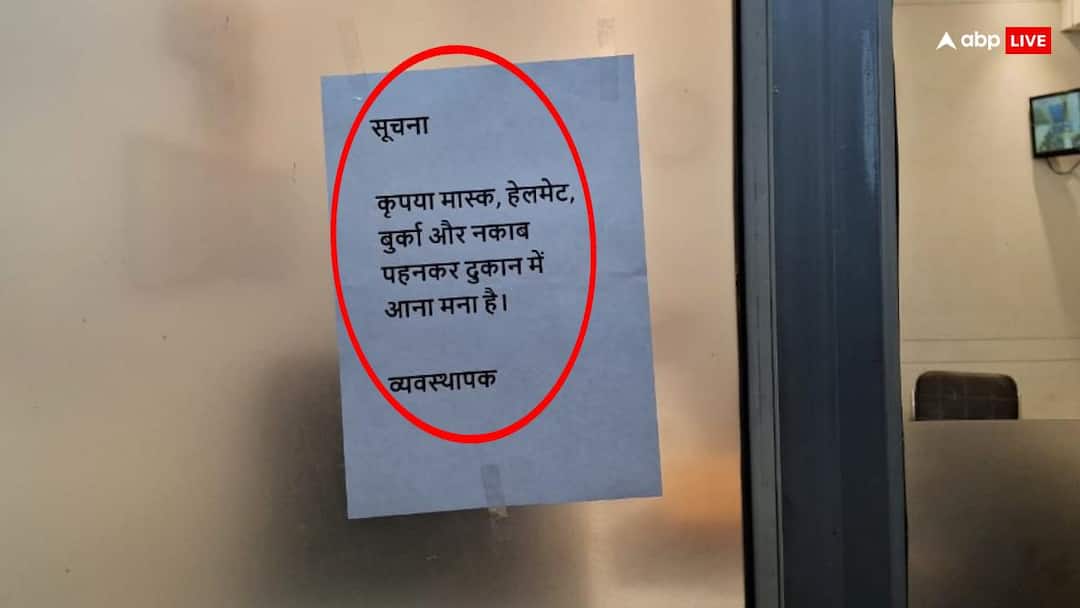 abp LIVE
सूचना
कृपया मास्क, हेलमेट,
बुर्का और नकाब
पहनकर दुकान में
आना मना है।
व्यवस्थापक